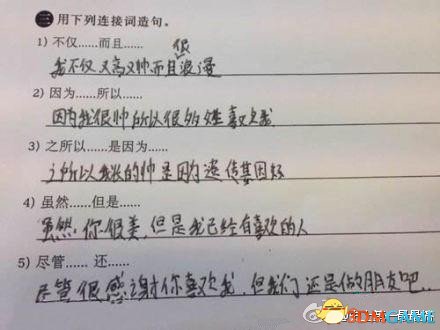 三 用下列连接词造句。
1) 不仅……而且……
我不仅又高又帅而且很浪漫
2) 因为……所以……
因为我很帅所以很多姓喜欢我
3) 之所以……是因为……
之所以我长的帅是因为遗传基因好
4) 虽然……但是……
虽然你很美,但是我已经有喜欢的人
5) 尽管…… 还……
尽管很感谢你喜欢我,但我们还是做朋友吧..
3DMGAME